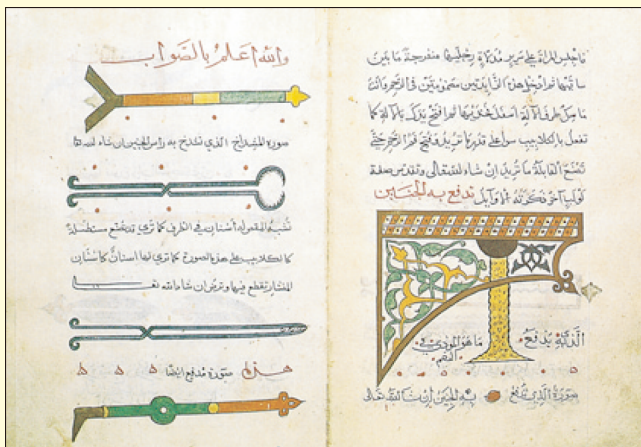 فاجلس المرأة على سرير مدلاة رجليها منفرجة ما بين
ساقيها ثم ادخل هذين الزائدتين في الرحم وانت
ماسك طرف الآلة اسفل ثم افتح يدك بالآلة كما
تفعل بالكلاليب سواء على قدر ما تريد وتفتح فم الرحم حتى
تصنع القابلة ما تريد ان شاء الله تعالى
لولب آخر ذكرته الاوايل تدفع به الجنين
يدفع ما هو المؤدي في
صورة الذي تدفع به الجنين ان شاء الله تعالى
والله اعلم بالصواب
صورة المشداخ الذي تشدخ به راس الجنين ان شاء الله تعالى
تشبه المقص له اسنان في الطرف كما ترى وقد تصنع مستطيلة
كالكلاليب على هذه الصورة كما ترى لها اسنان كاسنان
المنشار تقطع بها وترض ان شاء الله تعالى
هذه صورة مدفع ايضا